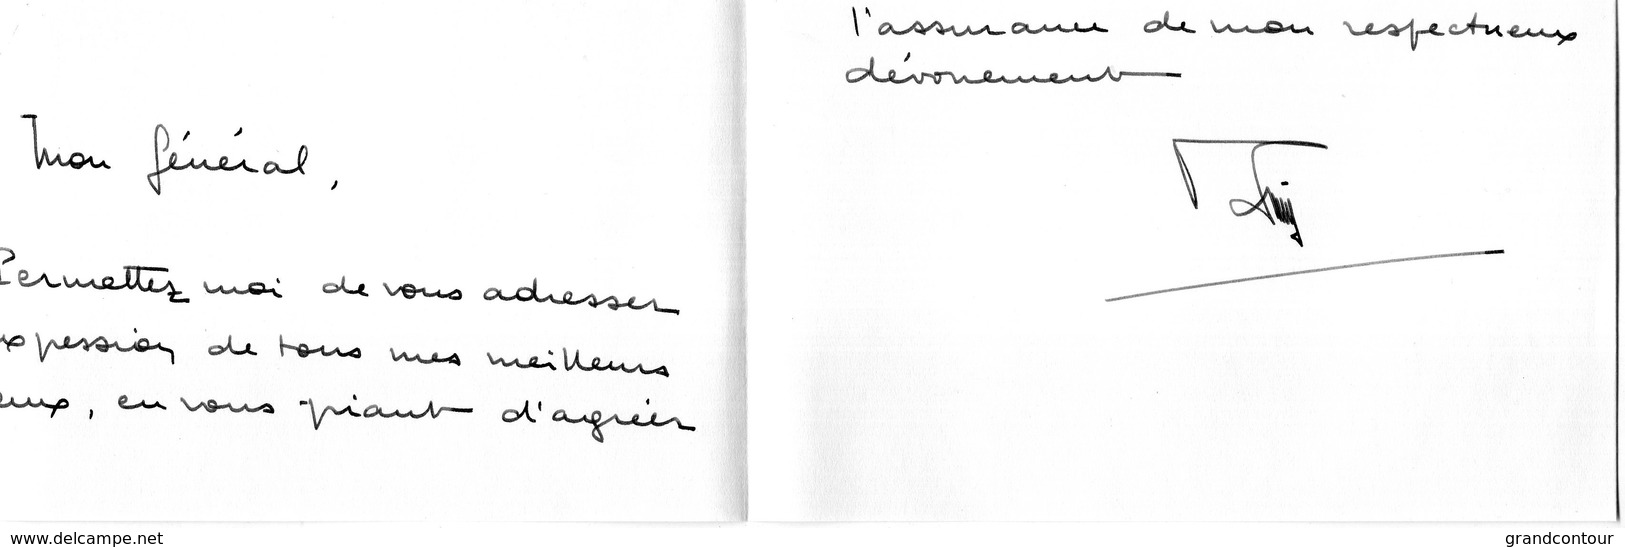 Mon général,
Permettez moi de vous adresser
xpession de tous mes meilleurs
eux, en vous priant d'agréer
l'assurance de mon respectueux
dévouement
www.delcampe.net
grandcontour